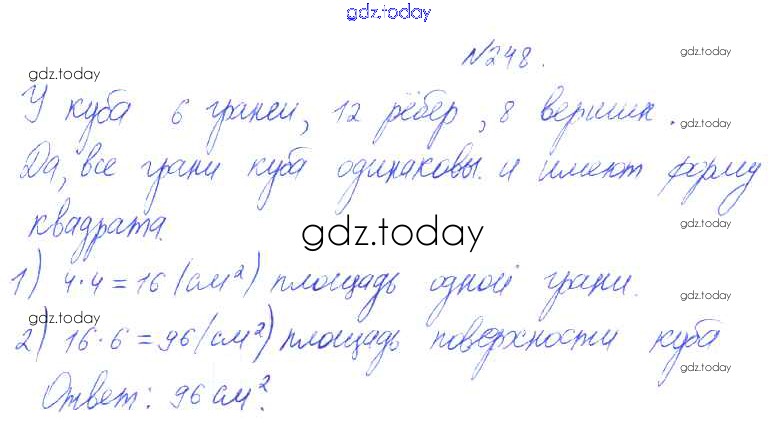 gdz.today
№248.
gdz.today
gdz.today
У куба 6 граней, 12 рёбер, 8 вершин.
gdz.today
Да, все грани куба одинаковы и имеют форму
gdz.today
квадрата.
gdz.today
gdz.today
1) 4·4=16 (см²) площадь одной грани.
gdz.today
gdz.today
2) 16·6=96 (см²) площадь поверхности куба
gdz.today
Ответ: 96 см².